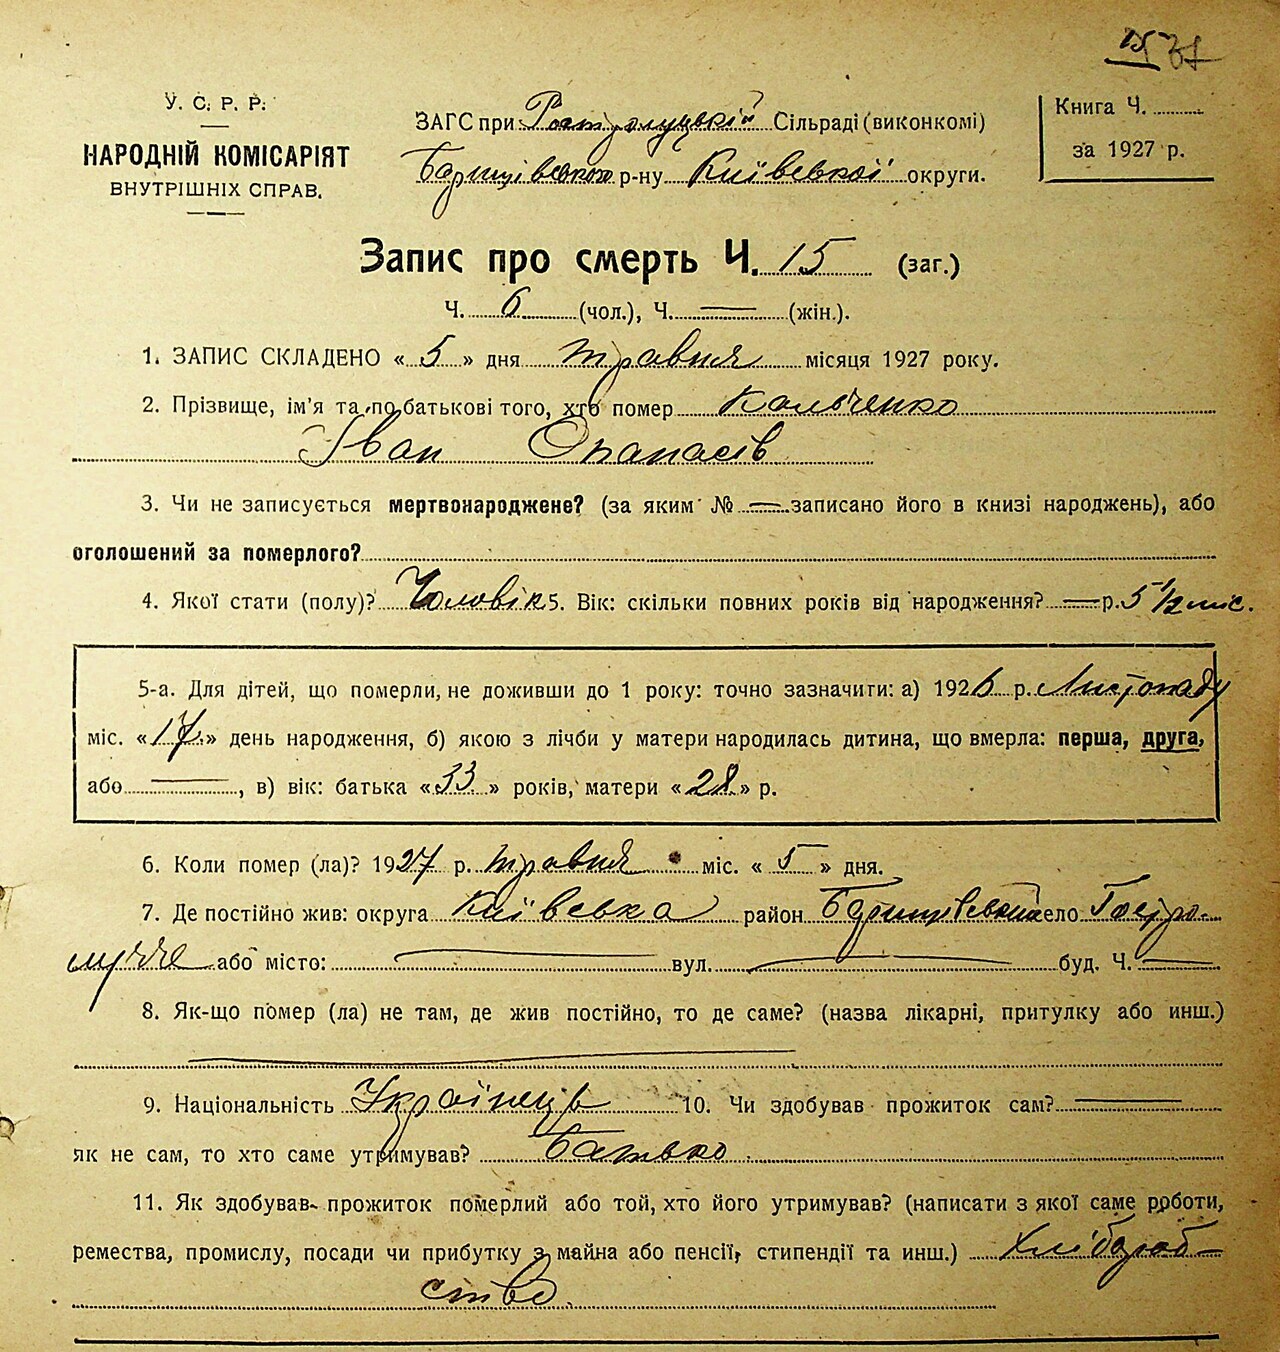 15 31
У. С. Р. Р.
НАРОДНІЙ КОМІСАРІЯТ
ВНУТРІШНІХ СПРАВ.
ЗАГС при Гостролуцькій Сільраді (виконкомі)
Баришівського р-ну Київської округи.
Книга Ч.
за 1927 р.
Запис про смерть Ч. 15 (заг.)
Ч. 6 (чол.), Ч. — (жін.).
1. ЗАПИС СКЛАДЕНО « 5 » дня травня місяця 1927 року.
2. Прізвище, ім'я та по батькові того, хто помер Кальченко
Іван Опанасів
3. Чи не записується мертвонароджене? (за яким № — записано його в книзі народжень), або
оголошений за померлого?
4. Якої стати (полу)? Чоловік 5. Вік: скільки повних років від народження? — р. 5 1/2 міс.
5-а. Для дітей, що померли, не доживши до 1 року: точно зазначити: а) 1926 р. Листопаду
міс. « 17 » день народження, б) якою з лічби у матери народилась дитина, що вмерла: перша, друга,
або —, в) вік: батька « 33 » років, матери « 28 » р.
6. Коли помер (ла)? 1927 р. травня міс. « 5 » дня.
7. Де постійно жив: округа Київська район Баришівський село Гостро-
луччє або місто: — вул. — буд. Ч. —
8. Як-що помер (ла) не там, де жив постійно, то де саме? (назва лікарні, притулку або инш.)
9. Національність Українець 10. Чи здобував прожиток сам? —
як не сам, то хто саме утримував? Батько
11. Як здобував прожиток померлий або той, хто його утримував? (написати з якої саме роботи,
ремества, промислу, посади чи прибутку з майна або пенсії, стипендії та инш.) Хлібороб-
ство